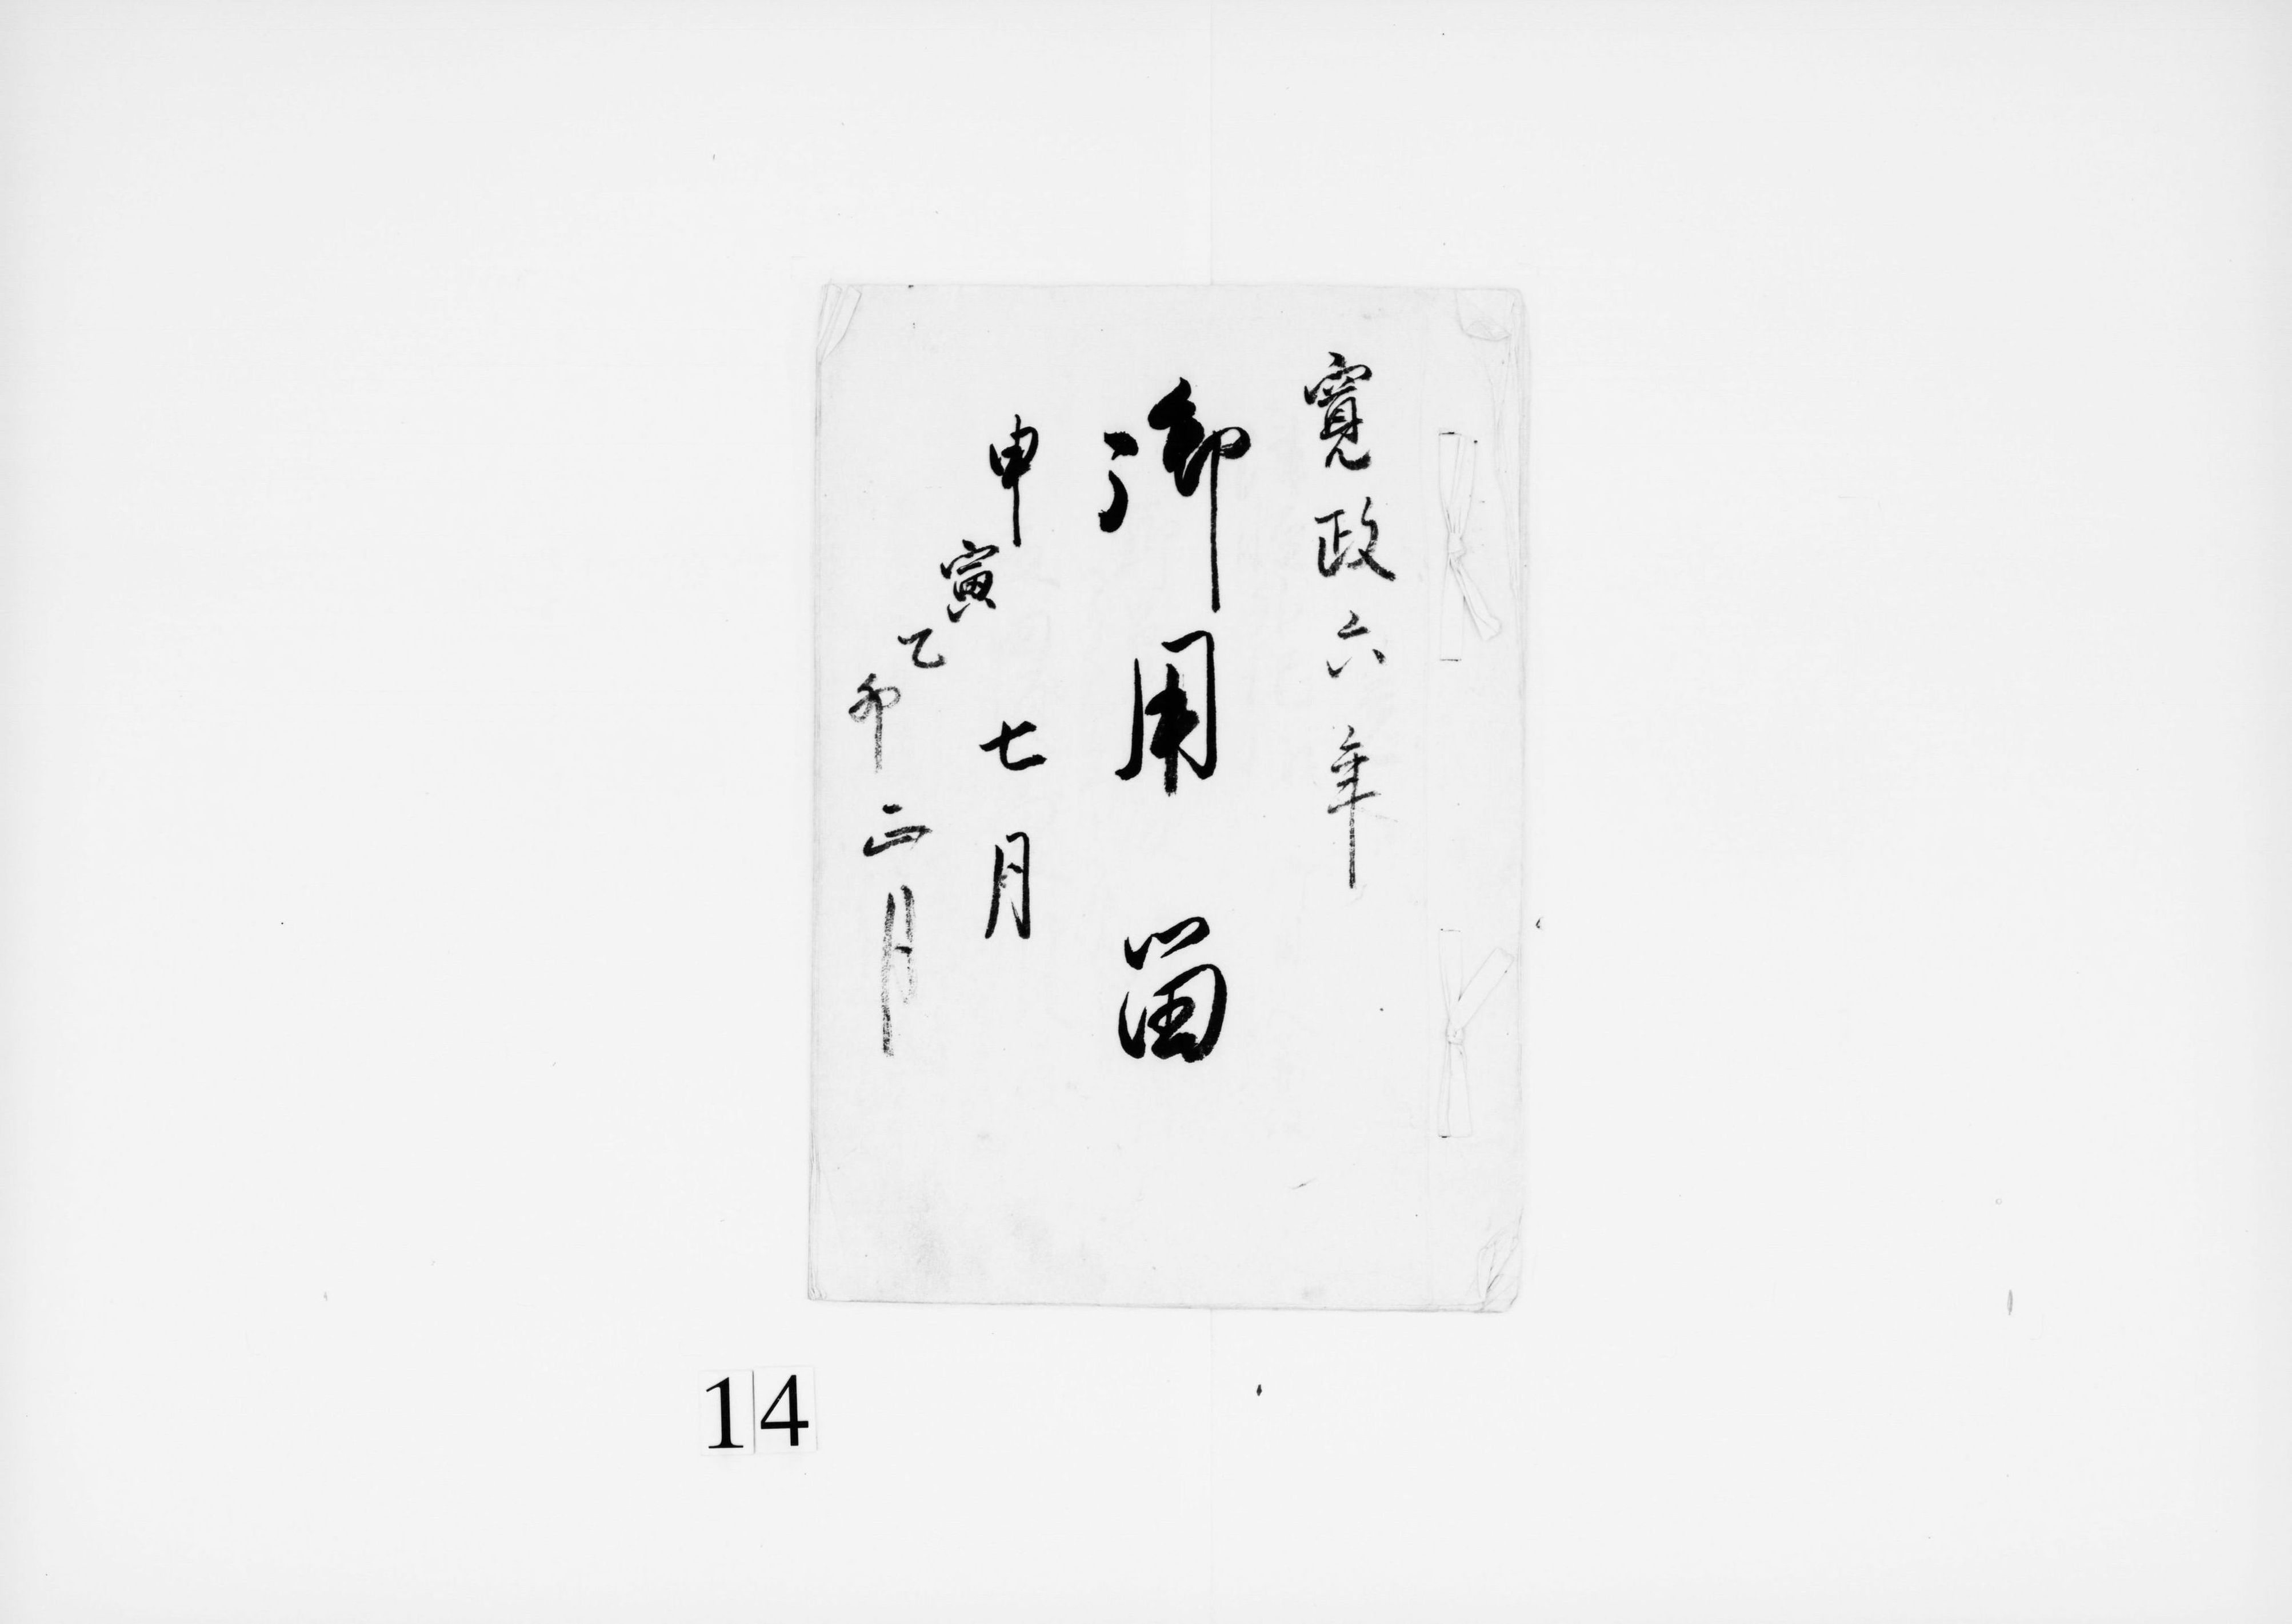 寛政六年
御用留
甲寅七月
乙卯正月
14